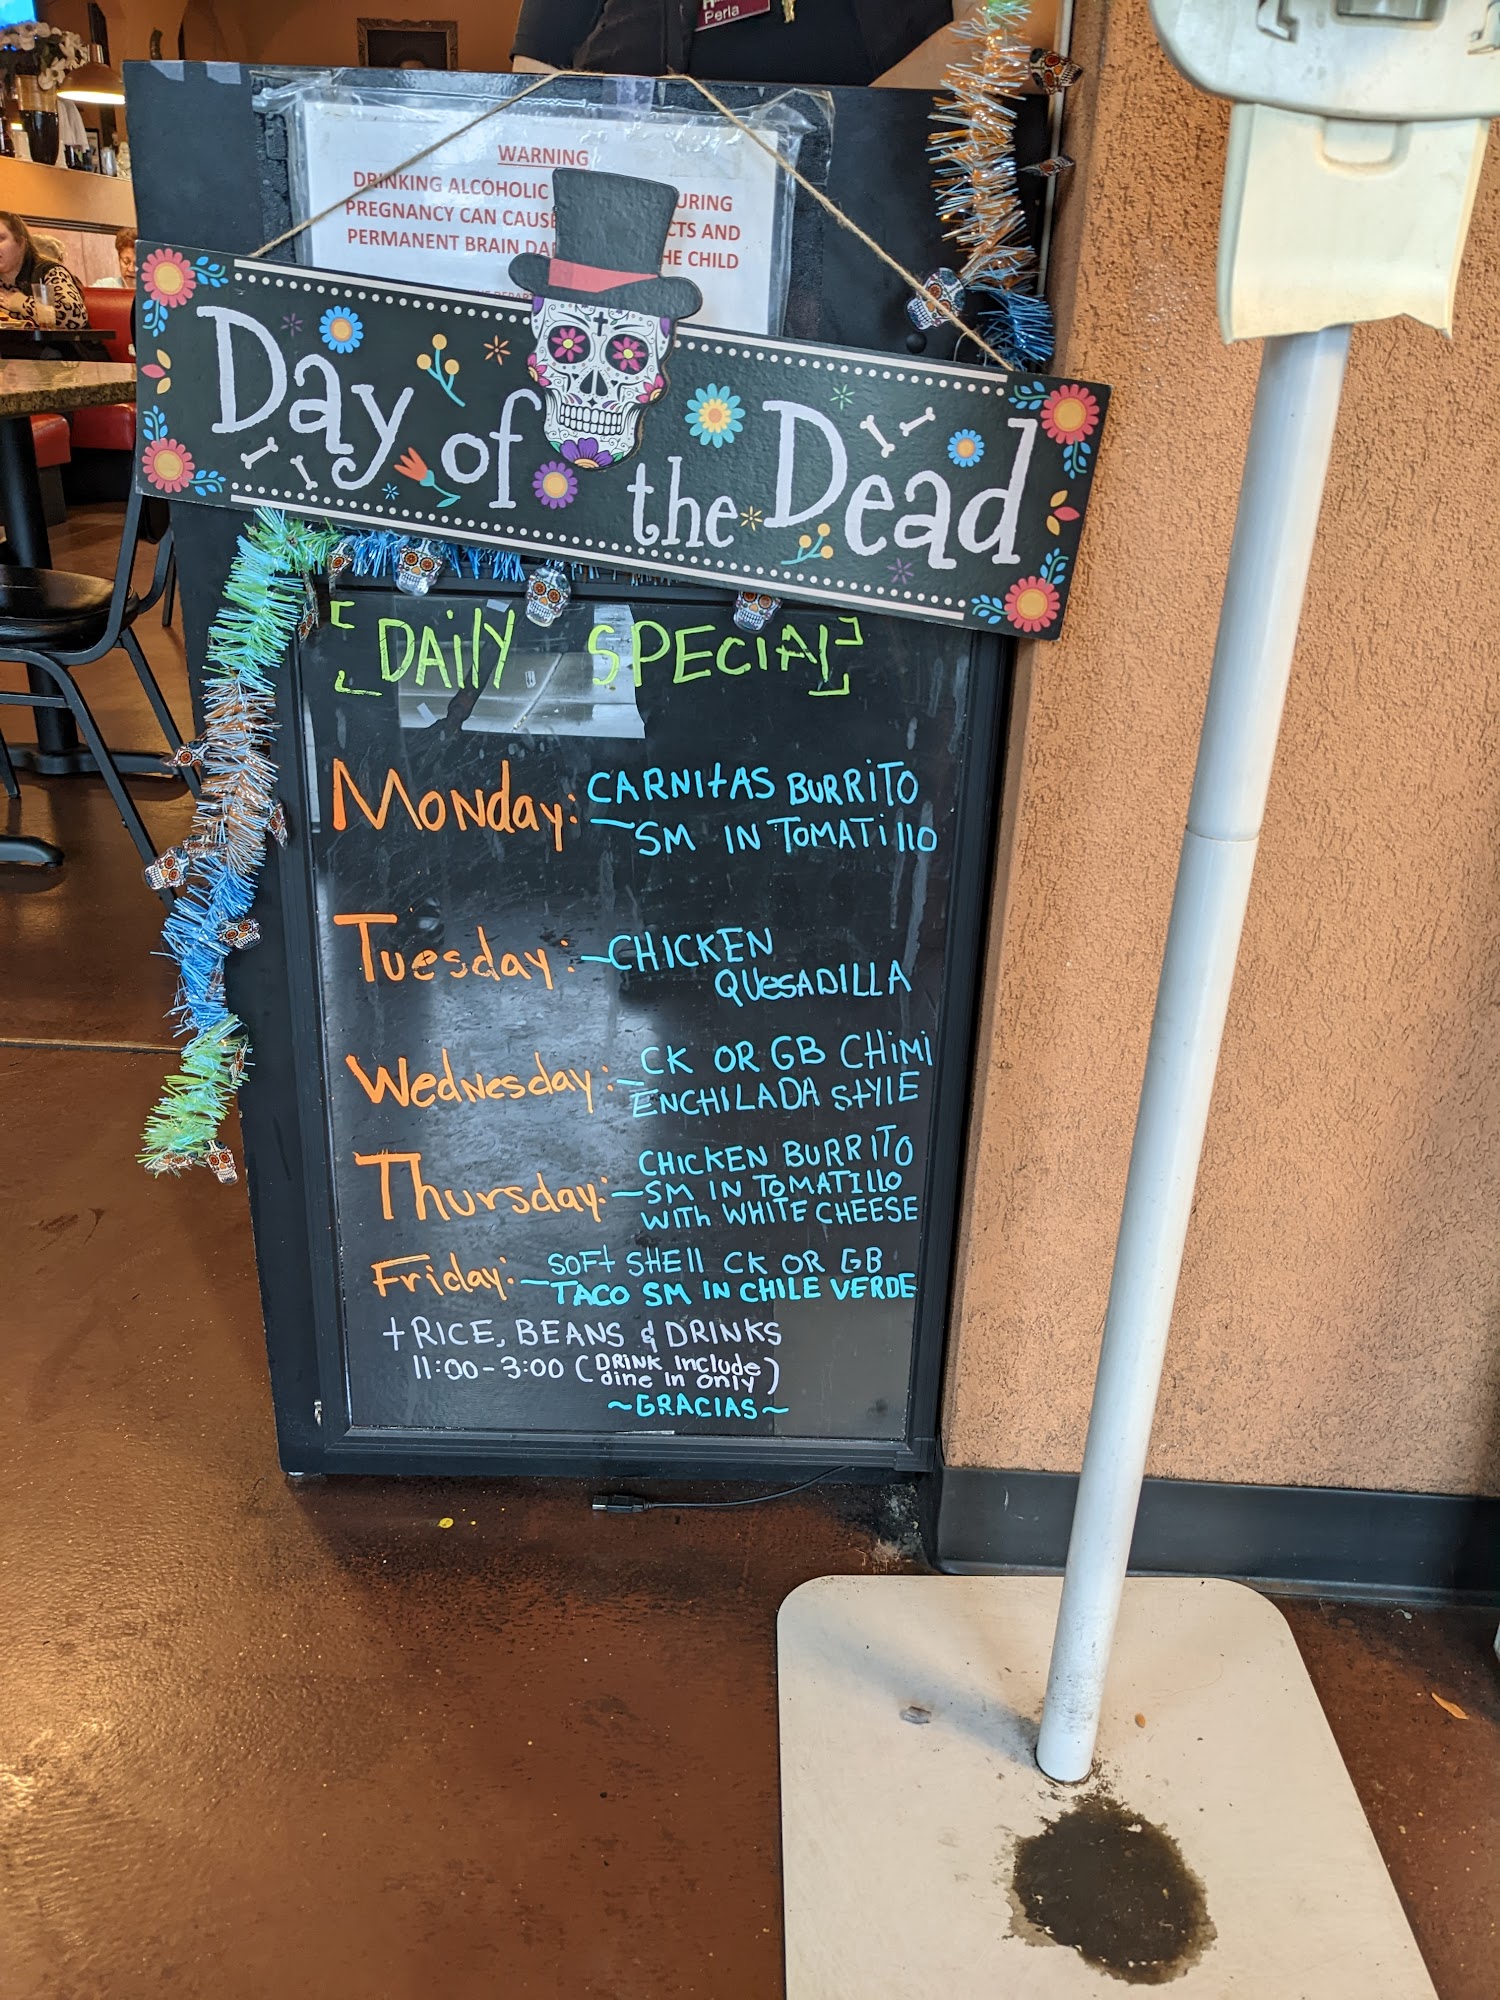 Perla
WARNING
DRINKING ALCOHOLIC URING
PREGNANCY CAN CAUSE CTS AND
PERMANENT BRAIN HE CHILD
Day of the Dead
[DAILY SPECIAL]
Monday: CARNITAS BURRITO
SM IN TOMATILLO
Tuesday: CHICKEN
QUESADILLA
Wednesday: CK OR GB CHIMI
ENCHILADA STYLE
CHICKEN BURRITO
Thursday: SM IN TOMATILLO
WITH WHITE CHEESE
SOFT SHELL CK OR GB
Friday: TACO SM IN CHILE VERDE
+ RICE, BEANS & DRINKS
11:00-3:00 (DRINK include
dine in only)
~GRACIAS~